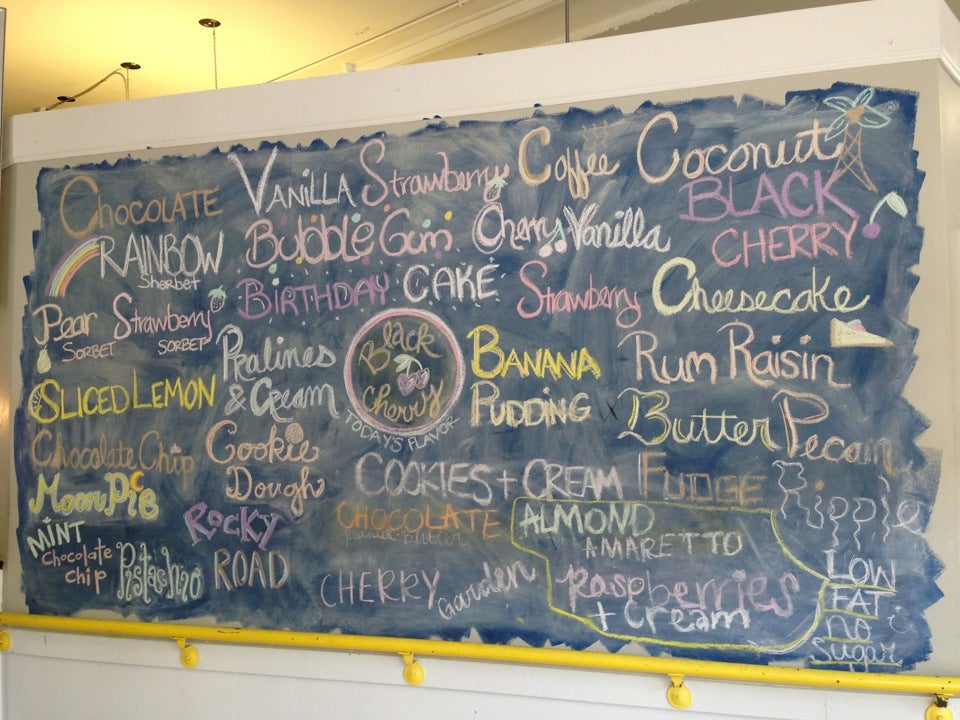 CHOCOLATE
VANILLA
Strawberry
Coffee
Coconut
RAINBOW
Sherbet
Bubble Gum
Cherry Vanilla
BLACK
CHERRY
BIRTHDAY CAKE
Strawberry Cheesecake
Pear
SORBET
Strawberry
SORBET
Pralines
& Cream
Black
Cherry
TODAY'S FLAVOR
BANANA
PUDDING
Rum Raisin
SLICED LEMON
Butter Pecan
Chocolate Chip
Cookie
Dough
COOKIES + CREAM
FUDGE
Ripple
MOON PIE
ROCKY
ROAD
CHOCOLATE
Peanut Butter
ALMOND
AMARETTO
MINT
Chocolate
chip
Pistachio
CHERRY Garden
Raspberries
+ Cream
LOW
FAT
no
sugar